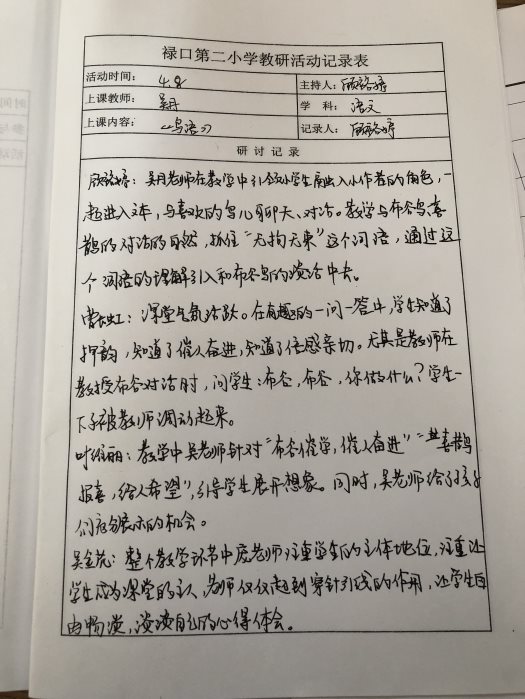 禄口第二小学教研活动记录表
活动时间： 4.8 主持人：顾路婷
上课教师： 吴月 学 科： 语文
上课内容： 《鸟语》 记录人：顾路婷
研 讨 记 录
顾路婷：吴月老师在教学中引领小学生融入小作者的角色，一
起进入文本，与喜欢的鸟儿聊天、对话。教学与布谷鸟、喜
鹊的对话的自然，抓住“无拘无束”这个词语，通过这
个词语的理解引入和布谷鸟的演话中去。
虹：课堂气氛活跃。在有趣的一问一答中，学生知道了
押韵，知道了催人奋进，知道了倍感亲切。尤其是教师在
教授布谷对话时，问学生：布谷，布谷，你做什么？学生一
下子被教师调动起来。
叶维丽：教学中吴老师针对“布谷催学，催人奋进”“喜鹊
报喜，给人希望”，引导学生展开想象。同时，吴老师给了孩子
们充分展示的机会。
吴金花：整个教学环节中老师注重学生的主体地位，注重让
学生成为课堂的主人，老师仅仅起到穿针引线的作用，让学生自
由畅谈，谈谈自己的心得体会。